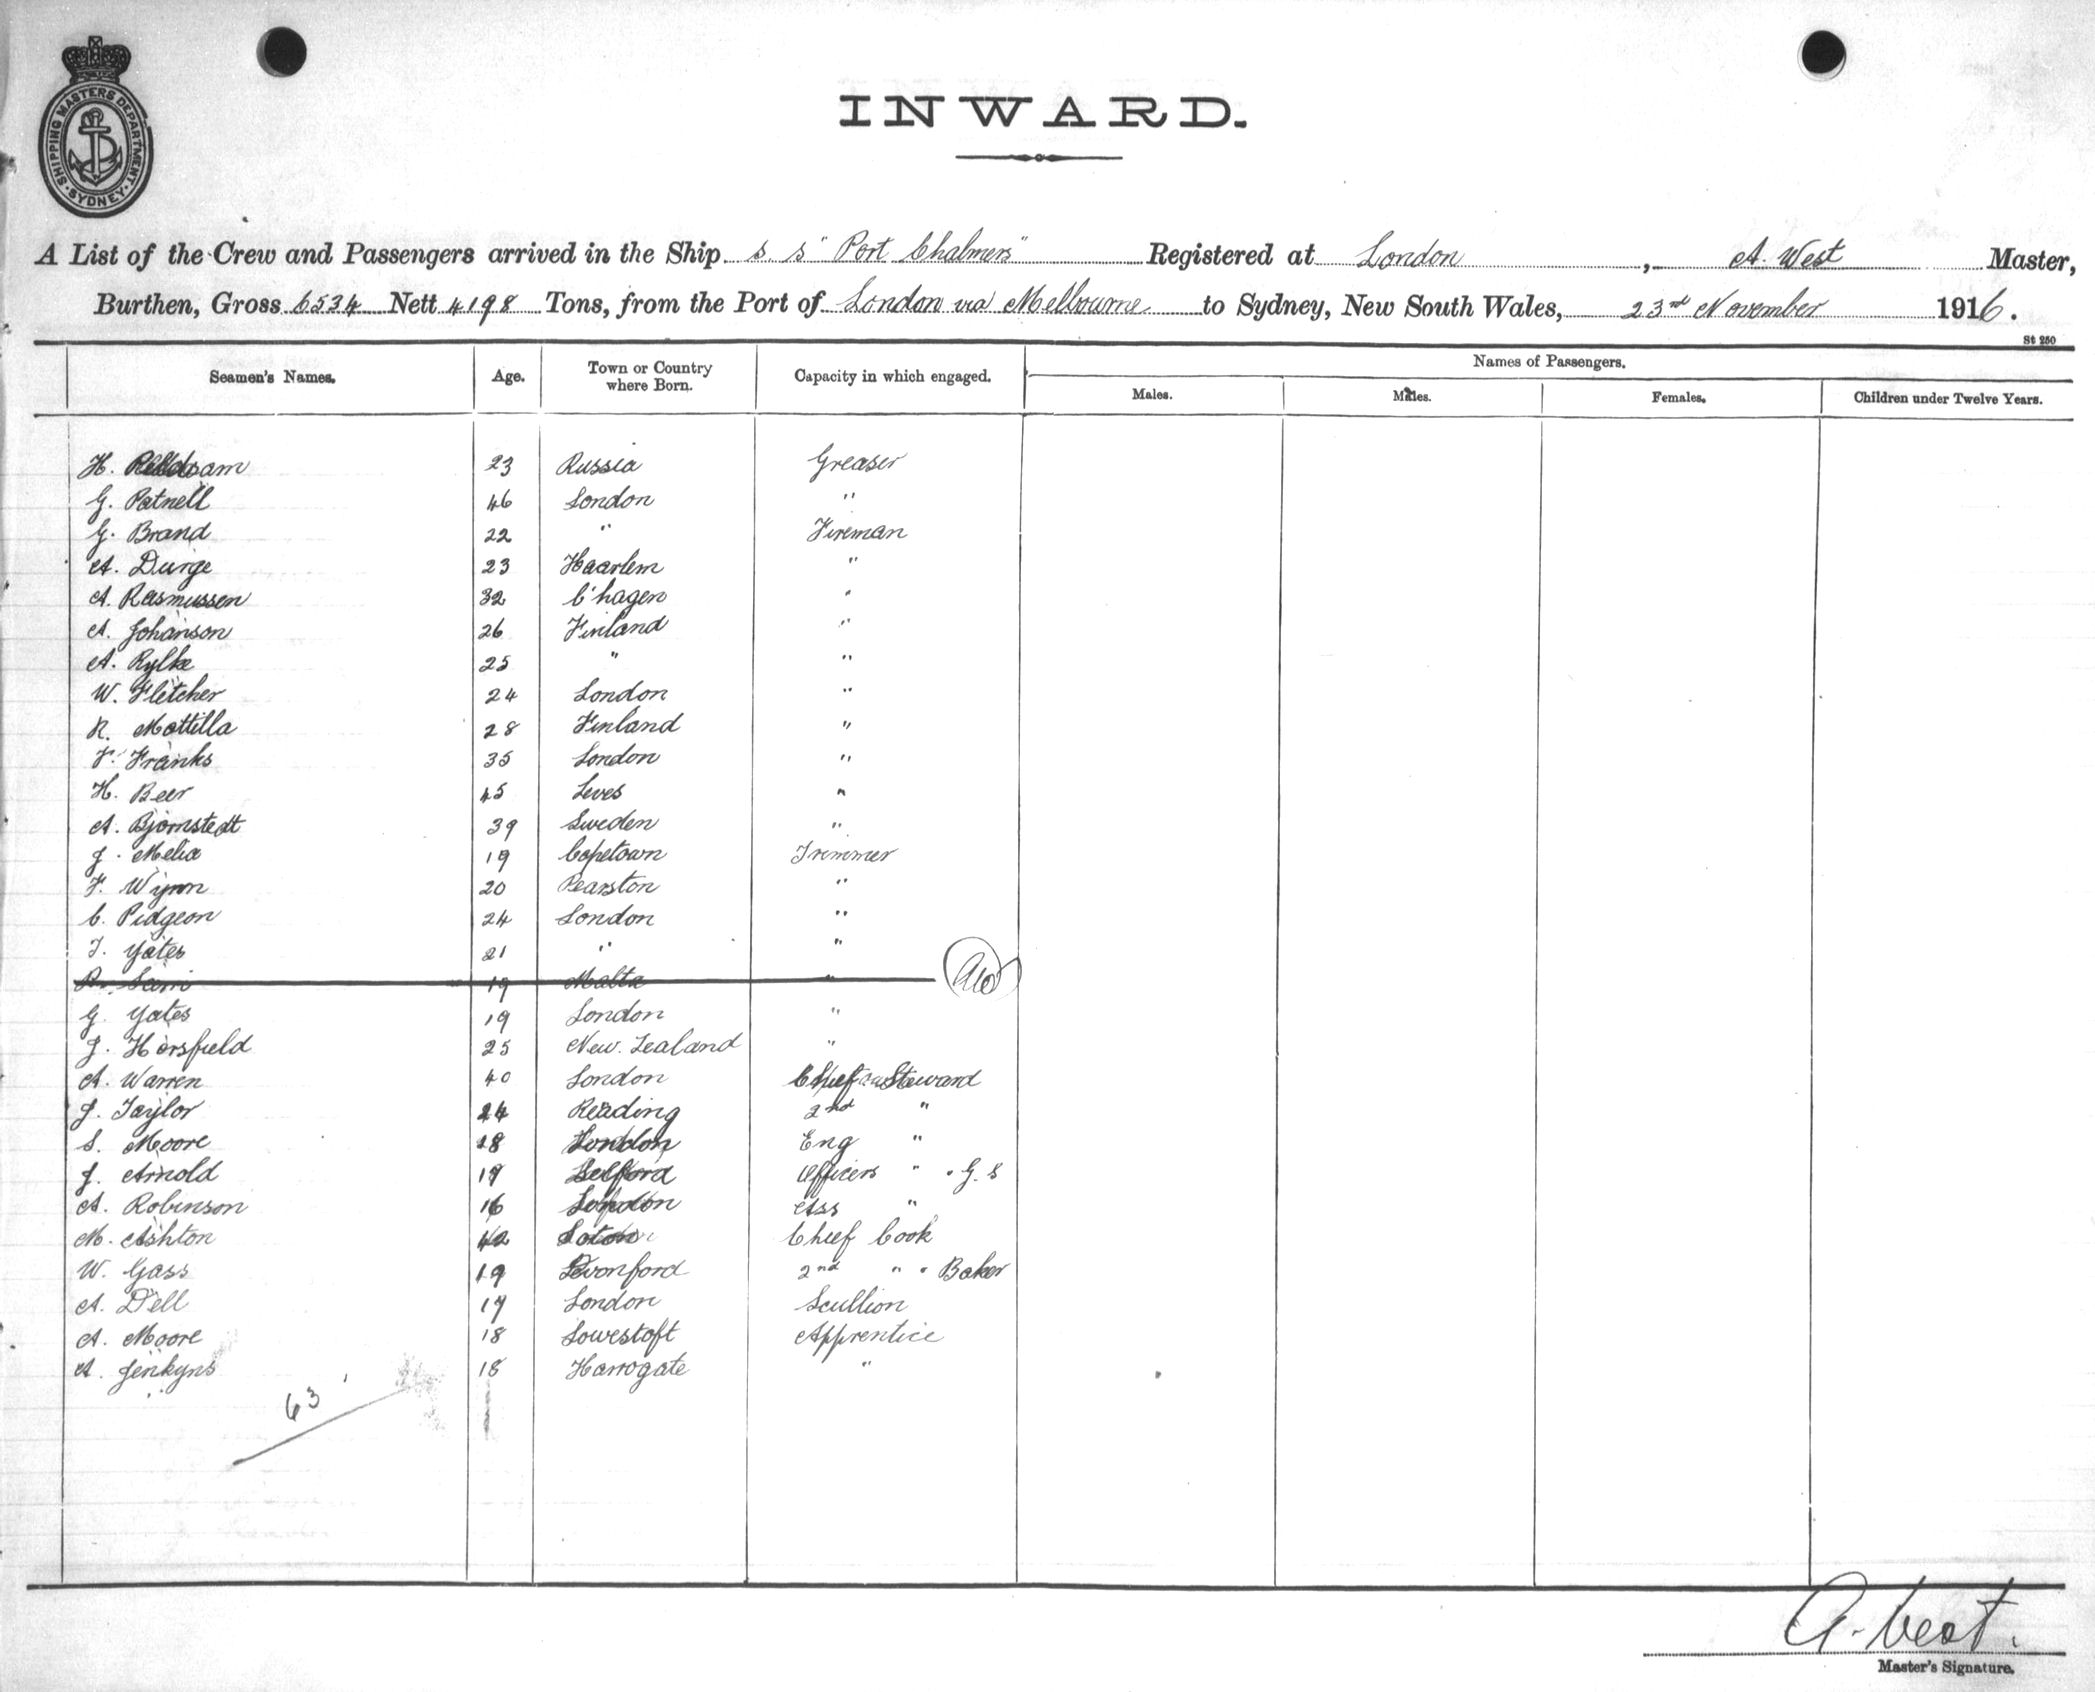 SHIPPING MASTERS DEPARTMENT
SYDNEY
INWARD.
A List of the Crew and Passengers arrived in the Ship S. S "Port Chalmers" Registered at London, A. West Master,
Burthen, Gross 6534 Nett 4198 Tons, from the Port of London via Melbourne to Sydney, New South Wales, 23rd November 1916.
St 250
Seamen's Names. Age. Town or Country where Born. Capacity in which engaged. Names of Passengers.
Males. Males. Females. Children under Twelve Years.
H. 23 Russia Greaser
G. Patnell 46 London "
G. Brand 22 " Fireman
A. Durge 23 Haarlem "
A. Rasmussen 32 C'hagen "
A. Johanson 26 Finland "
A. Rylke 25 " "
W. Fletcher 24 London "
R. Mattilla 28 Finland "
F. Franks 35 London "
H. Beer 45 Leves "
A. Bjornstedt 39 Sweden "
J. Melia 19 Capetown Trimmer
F. Wynn 20 Pearston "
C. Pidgeon 24 London "
T. Yates 21 " "
19 Malta "
G. Yates 19 London "
J. Horsfield 25 New Zealand "
A. Warren 40 London Chief Steward
J. Taylor 24 Reading 2nd "
S. Moore 18 London Eng "
J. Arnold 19 Officers " " G. S
A. Robinson 16 London Ass "
M. Ashton 42 Soton Chief Cook
W. Gass 19 2nd " " Baker
A. Dell 17 London Scullion
A. Moore 18 Lowestoft Apprentice
A. Jenkyns 18 Harrogate "
63
A. West.
Master's Signature.